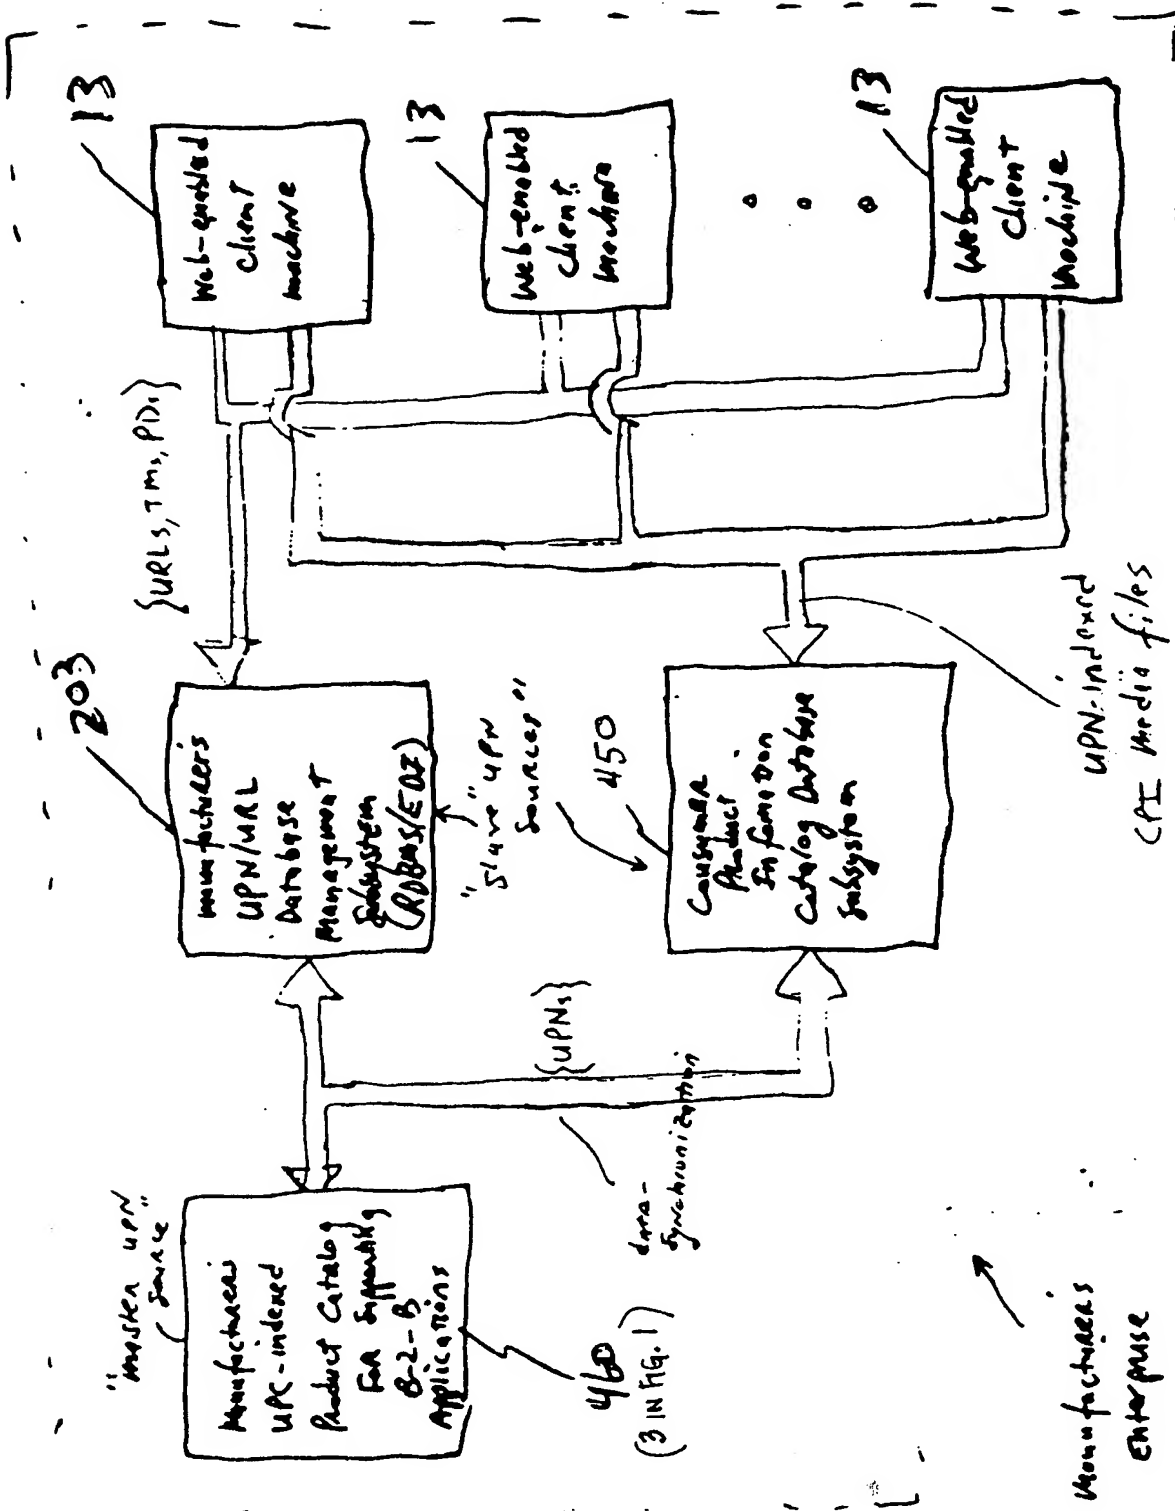 "master UPN
source"
Manufacturers
UPC-indexed
Product Catalog
For Supporting
B-2-B
Applications
460
(3 IN FIG. 1)
data-
synchronization
{UPNs}
203
manufacturers
UPN/URL
Database
Management
Subsystem
(RDBMS/EDI)
"slave" UPN
sources"
450
Consumer
Product
Information
Catalog Database
Subsystem
{URLs, TMs, PDs}
13
Web-enabled
Client
machine
13
Web-enabled
Client
machine
13
Web-enabled
Client
machine
UPN-Indexed
CPI media files
Manufacturers
Enterprise